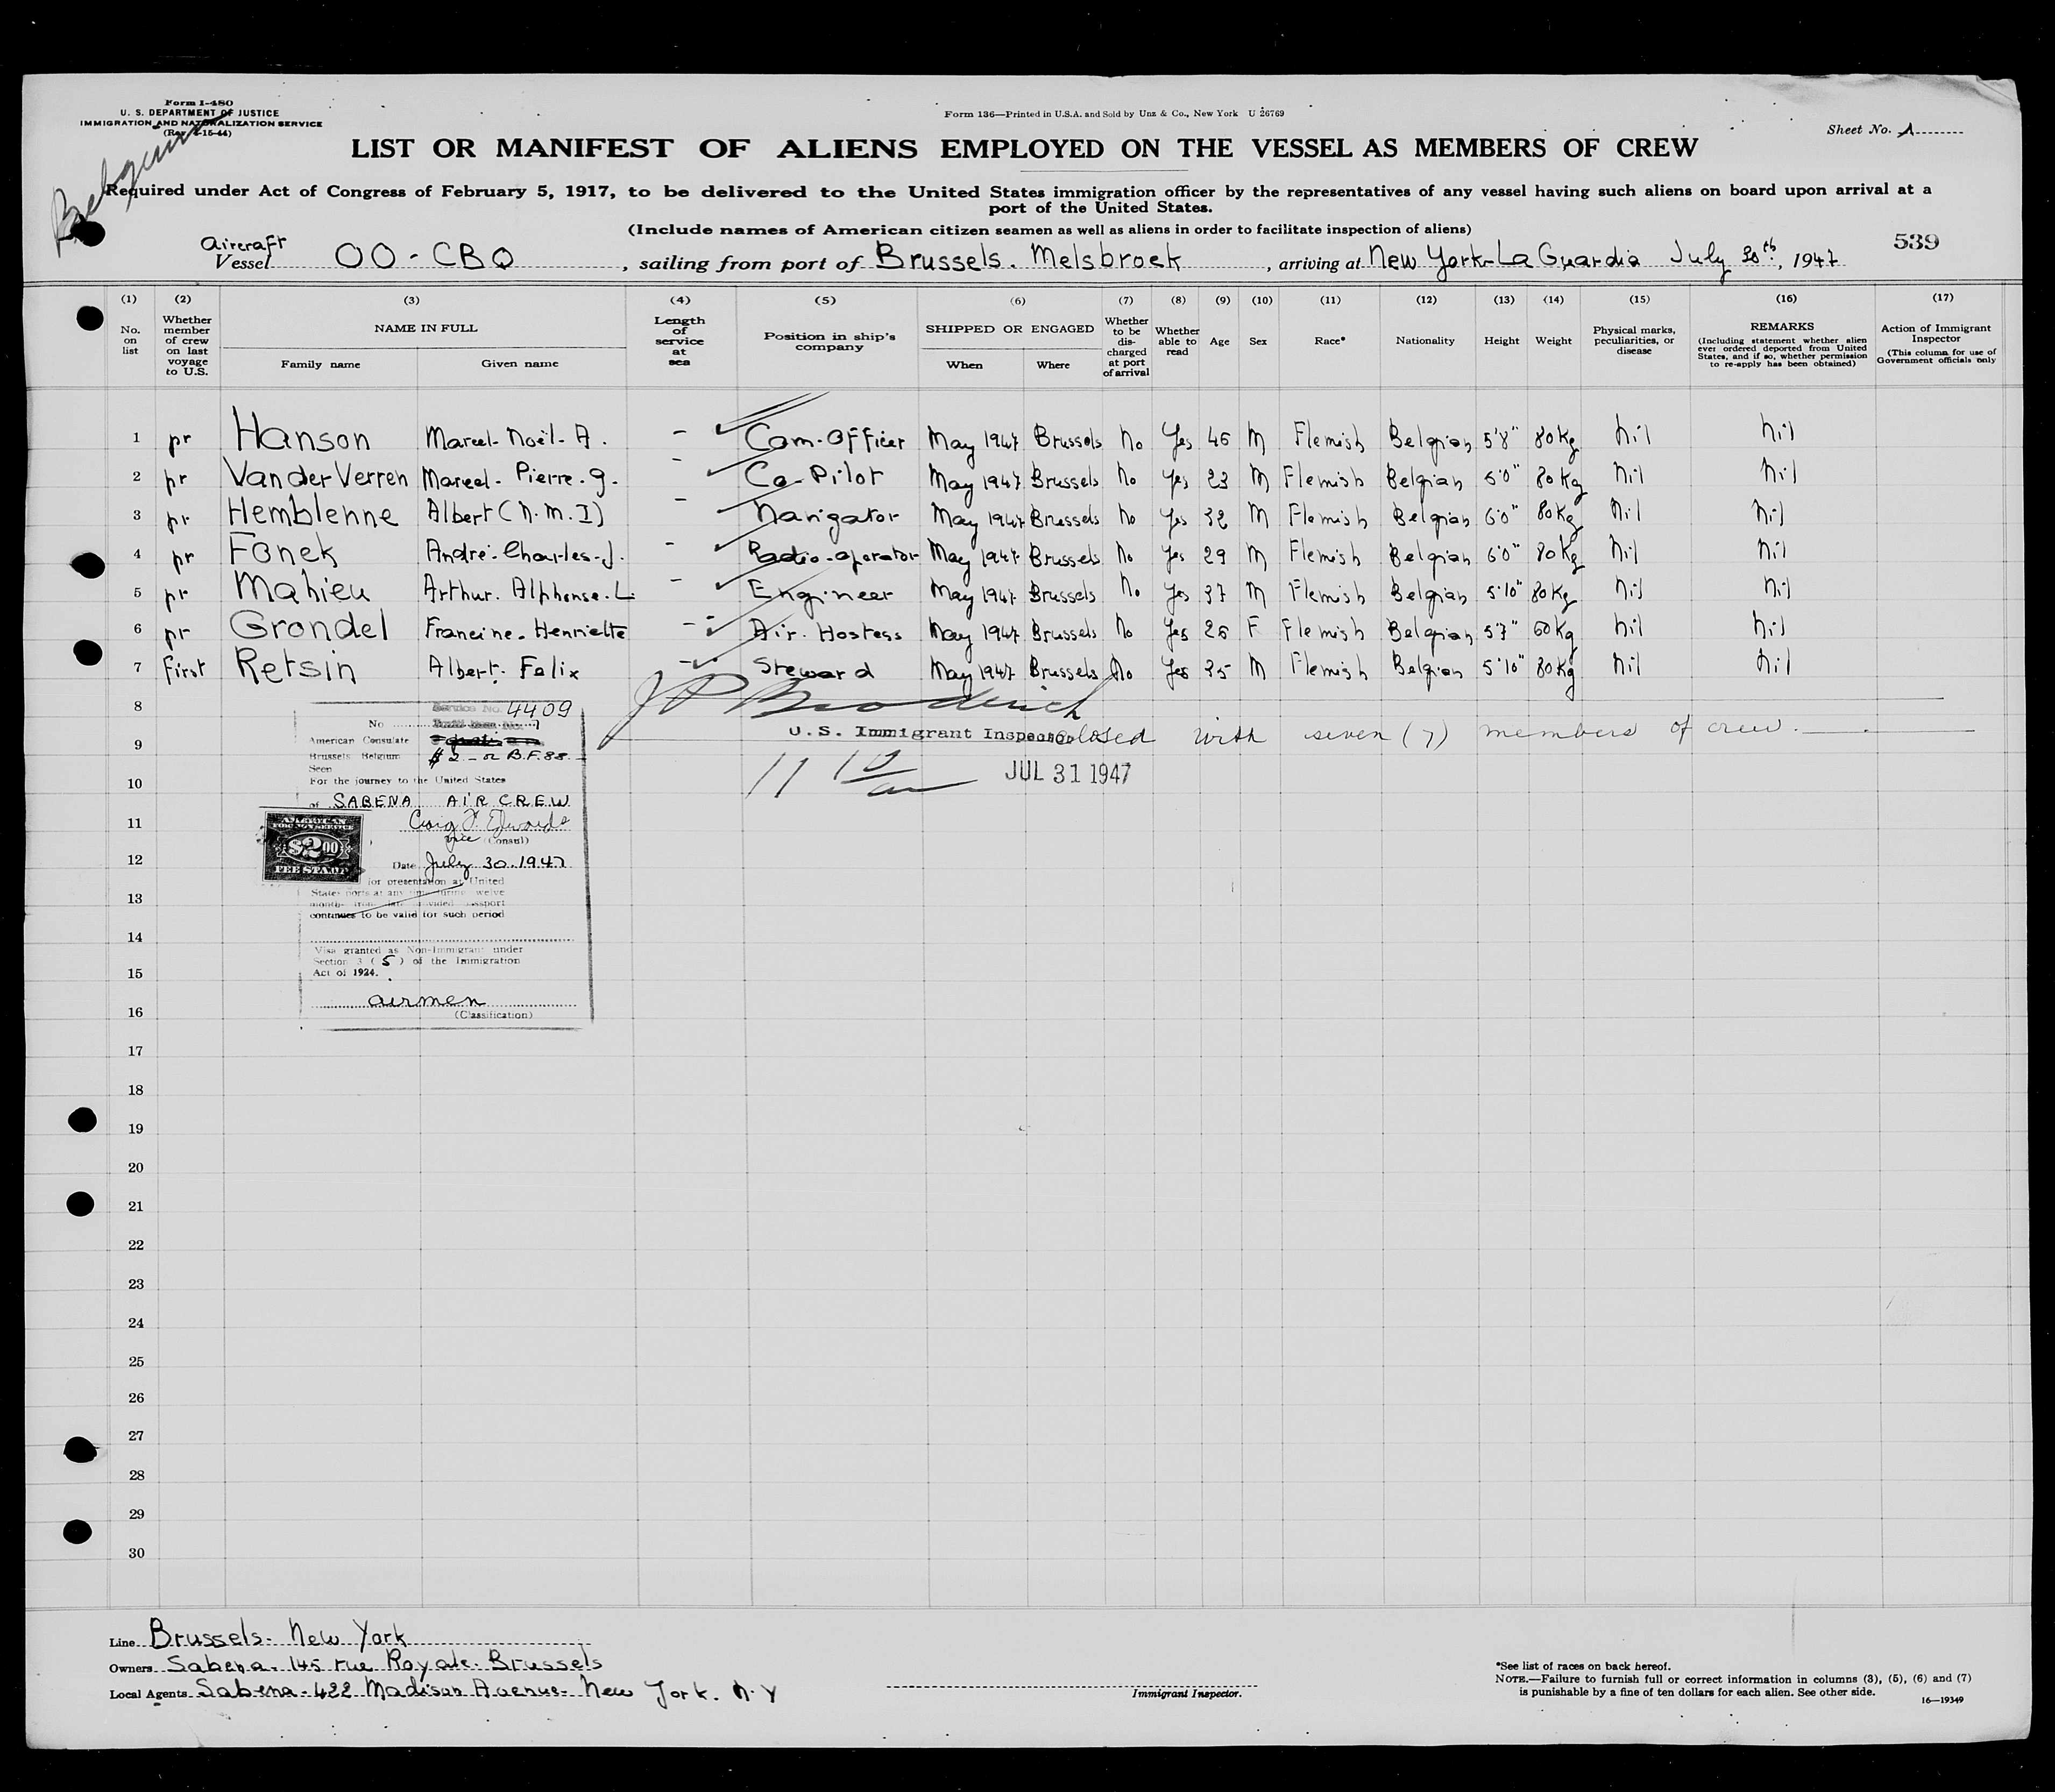 Form I-480
U. S. DEPARTMENT OF JUSTICE
IMMIGRATION AND NATURALIZATION SERVICE
(Rev. 4-15-44)
Belgium
Form 136—Printed in U.S.A. and Sold by Unz & Co., New York U 26769
Sheet No. A
LIST OR MANIFEST OF ALIENS EMPLOYED ON THE VESSEL AS MEMBERS OF CREW
Required under Act of Congress of February 5, 1917, to be delivered to the United States immigration officer by the representatives of any vessel having such aliens on board upon arrival at a
port of the United States.
(Include names of American citizen seamen as well as aliens in order to facilitate inspection of aliens)
539
Aircraft
Vessel OO-CBQ, sailing from port of Brussels. Melsbroek, arriving at New York-La Guardia July 30th, 1947
(1) (2) (3) (4) (5) (6) (7) (8) (9) (10) (11) (12) (13) (14) (15) (16) (17)
No. on list
Whether member of crew on last voyage to U.S.
NAME IN FULL
Family name Given name
Length of service at sea
Position in ship's company
SHIPPED OR ENGAGED
When Where
Whether to be discharged at port of arrival
Whether able to read
Age
Sex
Race*
Nationality
Height
Weight
Physical marks, peculiarities, or disease
REMARKS
(Including statement whether alien ever ordered deported from United States, and if so, whether permission to re-apply has been obtained)
Action of Immigrant Inspector
(This column for use of Government officials only
1 pr Hanson Marcel-Noël-A. - Com-Officer May 1947 Brussels No Yes 46 M Flemish Belgian 5'8" 80Kg Nil Nil
2 pr Van der Verren Marcel-Pierre-G. - Co-Pilot May 1947 Brussels No Yes 23 M Flemish Belgian 6'0" 80Kg Nil Nil
3 pr Hemblenne Albert (N.M.I) - Navigator May 1947 Brussels No Yes 32 M Flemish Belgian 6'0" 80Kg Nil Nil
4 pr Fonek André-Charles-J. - Radio-operator May 1947 Brussels No Yes 29 M Flemish Belgian 6'0" 80Kg Nil Nil
5 pr Mahieu Arthur. Alphonse. L. - Engineer May 1947 Brussels No Yes 37 M Flemish Belgian 5'10" 80Kg Nil Nil
6 pr Grondel Francine. Henriette - Air. Hostess May 1947 Brussels No Yes 26 F Flemish Belgian 5'7" 60Kg Nil Nil
7 First Retsin Albert. Felix - Steward May 1947 Brussels No Yes 35 M Flemish Belgian 5'10" 80Kg Nil Nil
8
9
10
11
12
13
14
15
16
17
18
19
20
21
22
23
24
25
26
27
28
29
30
J P Broderick
U.S. Immigrant Inspector
closed with seven (7) members of crew.
11 10 am
JUL 31 1947
Service No. 4409
No
American Consulate
Brussels Belgium $2 - or B.F. 88.
Seen
For the journey to the United States
of SABENA AIR CREW
Craig F. Edwards
Vice (Consul)
AMERICAN
FOREIGN SERVICE
$2.00
FEE STAMP
Date July 30. 1947
for presentation at United
States ports at any time during twelve
months from date provided passport
continues to be valid for such period
Visa granted as Non-Immigrant under
Section 3 (5) of the Immigration
Act of 1924.
airmen
(Classification)
Line Brussels- New York
Owners Sabena. 145 rue Royale. Brussels
Local Agents Sabena-422 Madison Avenue- New York. N.Y
Immigrant Inspector.
*See list of races on back hereof.
NOTE.—Failure to furnish full or correct information in columns (3), (5), (6) and (7)
is punishable by a fine of ten dollars for each alien. See other side.
16—19349